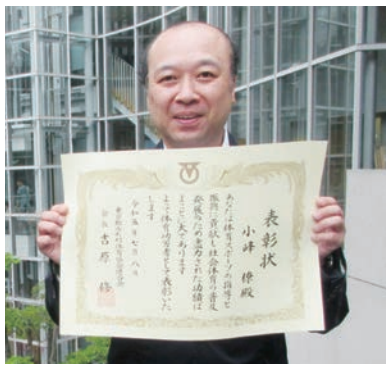 表彰状
小峰 徳殿
あなたは体育スポーツの指導と
振興に貢献し社会体育の普及
発展のため尽力された功績は
まことに大であります
よって体育功労者として表彰いた
します
令和五年七月八日
会長 吉原 修